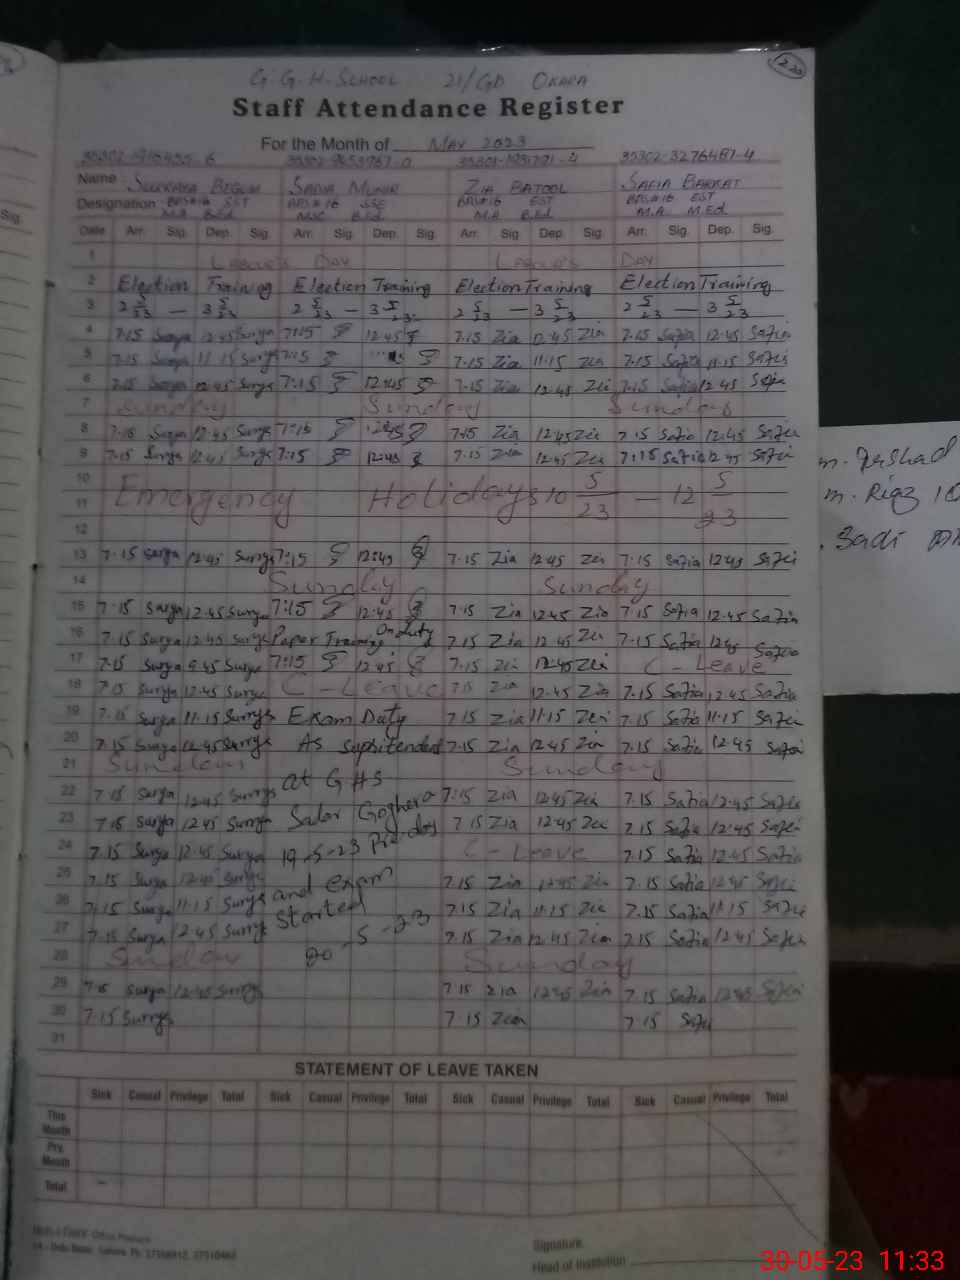 220
G.G.H. SCHOOL 21/GD OKARA
Staff Attendance Register
For the Month of May 2023
35302-3276487-4
Name Surraya Begum Sadia Munir Zia Batool Safia Barkat
Designation BPS#16 SST BPS#16 SSE BPS#16 EST BPS#16 EST
M.A B.Ed MSC B.Ed M.A B.Ed M.A. M.Ed
Date Arr. Sig. Dep. Sig. Arr. Sig. Dep. Sig. Arr. Sig. Dep. Sig. Arr. Sig. Dep. Sig.
1 Labour's Day Labour's Day
2 Election Training Election Training Election Training Election Training
3 2 5/23 — 3 5/23 2 5/23 — 3 5/23 2 5/23 — 3 5/23 2 5/23 — 3 5/23
4 7.15 Surya 12.45 Surya 7:15 12.45 7.15 Zia 12.45 Zia 7.15 Safia 12.45 Safia
5 7.15 Surya 11.15 Surya 7:15 7.15 Zia 11.15 Zia 7.15 Safia 11.15 Safia
6 7.15 Surya 12.45 Surya 7:15 12:45 7.15 Zia 12.45 Zia 7.15 Safia 12.45 Safia
7 Sunday Sunday Sunday
8 7.15 Surya 12.45 Surya 7:15 12:45 7.15 Zia 12.45 Zia 7.15 Safia 12.45 Safia
9 7.15 Surya 12.45 Surya 7:15 12:45 7.15 Zia 12.45 Zia 7:15 Safia 12.45 Safia
10
11 Emergency Holidays 10 5/23 — 12 5/23
12
13 7.15 Surya 12.45 Surya 7:15 12:45 7.15 Zia 12.45 Zia 7.15 Safia 12.45 Safia
14 Sunday Sunday
15 7.15 Surya 12.45 Surya 7:15 12:45 7.15 Zia 12.45 Zia 7.15 Safia 12.45 Safia
16 7.15 Surya 12.45 Surya Paper Training On duty 7.15 Zia 12.45 Zia 7.15 Safia 12.45 Safia
17 7.15 Surya 9.45 Surya 7:15 12:45 7.15 Zia 12.45 Zia C-Leave
18 7.15 Surya 12.45 Surya C-Leave 7.15 Zia 12.45 Zia 7.15 Safia 12.45 Safia
19 7.15 Surya 11.15 Surya Exam Duty 7.15 Zia 11.15 Zia 7.15 Safia 11.15 Safia
20 7.15 Surya 12.45 Surya As supritendent 7.15 Zia 12.45 Zia 7.15 Safia 12.45 Safia
21 Sunday Sunday
22 7.15 Surya 12.45 Surya at GHS 7:15 Zia 12.45 Zia 7.15 Safia 12.45 Safia
23 7.15 Surya 12.45 Surya Salar Goghera 7.15 Zia 12.45 Zia 7.15 Safia 12.45 Safia
24 7.15 Surya 12.45 Surya 19-5-23 Pre-day C-Leave 7.15 Safia 12.45 Safia
25 7.15 Surya 12.45 Surya and exam 7.15 Zia 12.45 Zia 7.15 Safia 12.45 Safia
26 7.15 Surya 11.15 Surya started 7.15 Zia 11.15 Zia 7.15 Safia 11.15 Safia
27 7.15 Surya 12.45 Surya 20-5-23 7.15 Zia 12.45 Zia 7.15 Safia 12.45 Safia
28 Sunday Sunday
29 7.15 Surya 12.45 Surya 7.15 Zia 12.45 Zia 7.15 Safia 12.45 Safia
30 7.15 Surya 7.15 Zia 7.15 Safia
31
STATEMENT OF LEAVE TAKEN
Sick Casual Privilege Total Sick Casual Privilege Total Sick Casual Privilege Total Sick Casual Privilege Total
This Month
Prv. Month
Total
Signature
Head of Institution
m. Arshad
m. Riaz
Sadi
Sig.
30-05-23 11:33